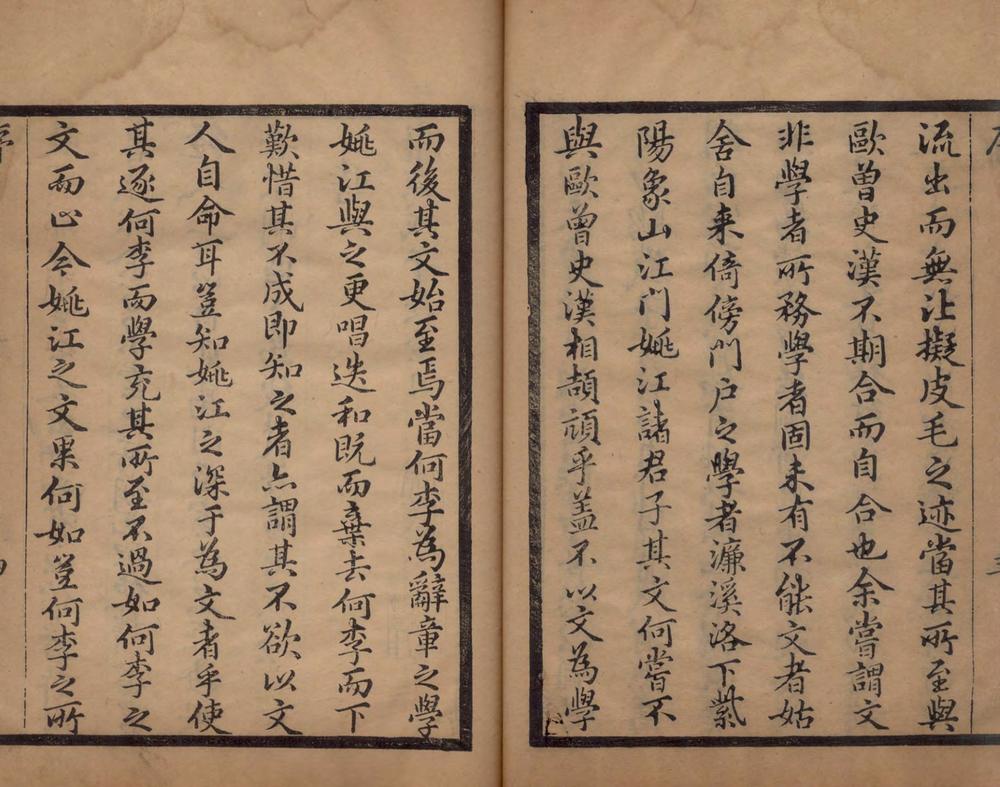 流出而無比擬皮毛之迹當其所至與
歐曾史漢不期合而自合也余嘗謂文
非學者所務學者固未有不能文者姑
舍自来倚傍門戶之學者濂溪洛下紫
陽象山江門姚江諸君子其文何嘗不
與歐曾史漢相頡頏乎盖不以文為學
而後其文始至焉當何李為辭章之學
姚江與之更唱迭和既而棄去何李而下
歎惜其不成即知之者亦謂其不欲以文
人自命耳豈知姚江之深于為文者乎使
其逐何李而學充其所至不過如何李之
文而止今姚江之文果何如豈何李之所